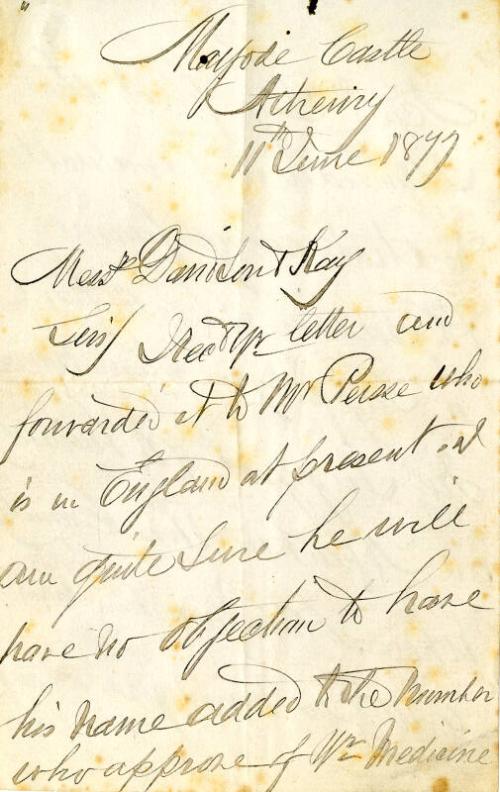 Moyode Castle
Athenry
11th June 1877
Messrs Davison & Kay
Sirs I recd yr letter and
forwarded it to Mr Persse who
is in England at present. I
am quite sure he will
have no objection to have
his name added to the number
who approve of yr Medicine